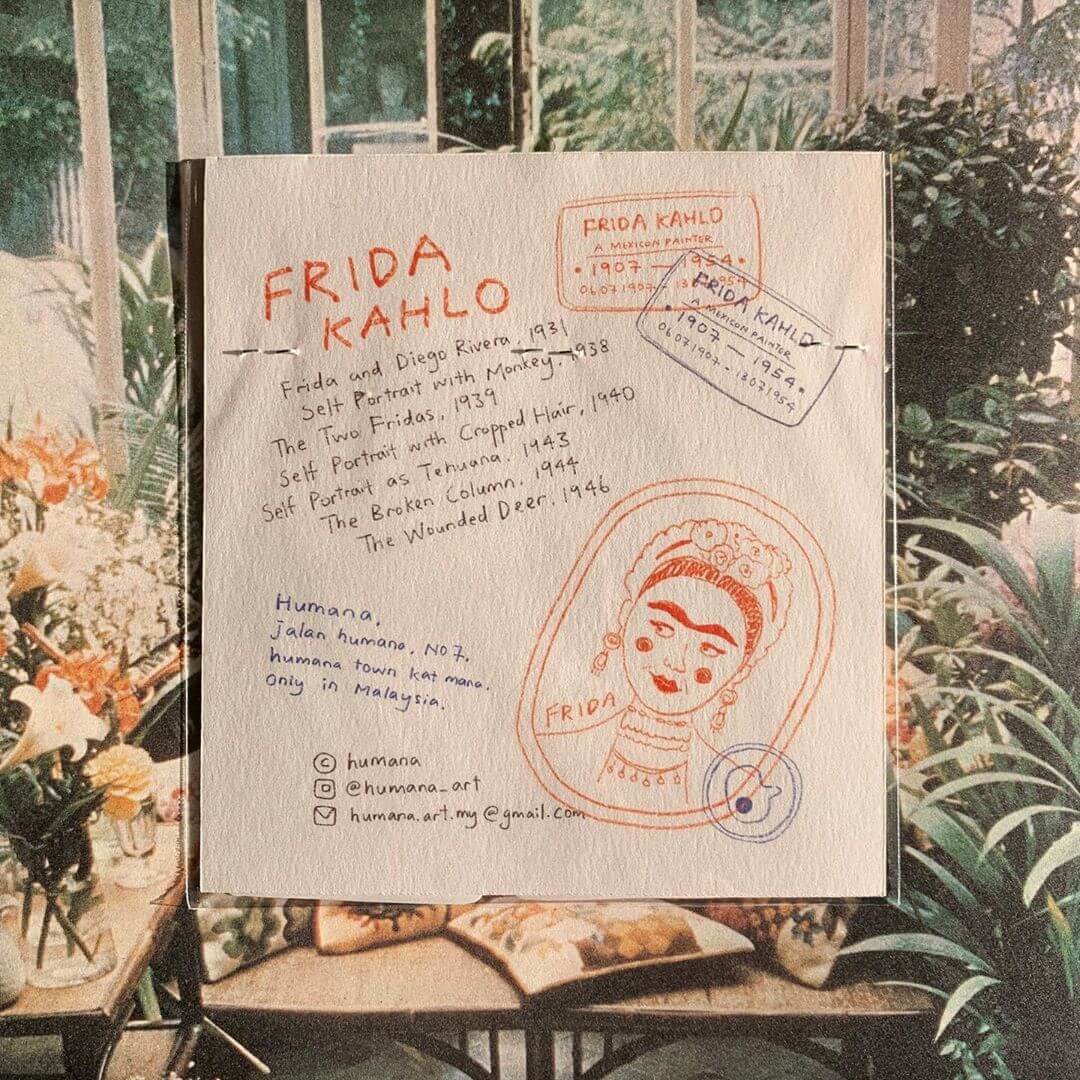 FRIDA
KAHLO
Frida and Diego Rivera, 1931
Self Portrait with Monkey, 1938
The Two Fridas, 1939
Self Portrait with Cropped Hair, 1940
Self Portrait as Tehuana, 1943
The Broken Column, 1944
The Wounded Deer, 1946
FRIDA KAHLO
A MEXICON PAINTER
• 1907 — 1954 •
06071907 - 13071954
FRIDA KAHLO
A MEXICON PAINTER
• 1907 — 1954 •
06071907 - 13071954
Humana,
jalan humana, NO 7,
humana town kat mana,
Only in Malaysia.
FRIDA
© humana
@humana_art
humana.art.my@gmail.com